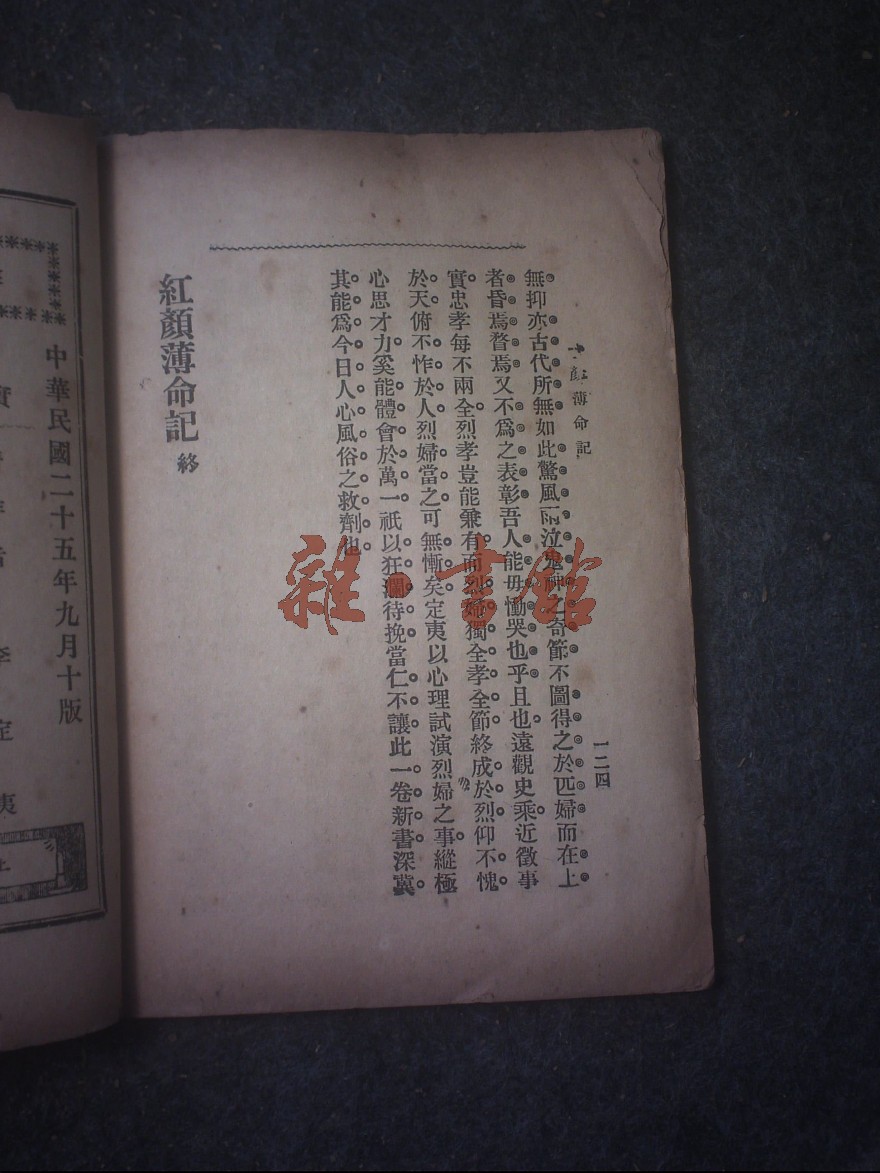 紅顏薄命記
一二四
無抑亦古代所無如此驚風雨泣鬼神之奇節不圖得之於匹婦而在上
者昏焉瞀焉又不爲之表彰吾人能毋慟哭也乎且也遠觀史乘近徵事
實忠孝每不兩全烈孝豈能兼有而烈婦獨全孝全節終成於烈仰不愧
於天俯不怍於人烈婦當之可無慚矣定夷以心理試演烈婦之事縱極
心思才力奚能體會於萬一祇以狂瀾待挽當仁不讓此一卷新書深冀
其能爲今日人心風俗之救劑也
紅顏薄命記 終
雜·書館
中華民國二十五年九月十版
李定夷